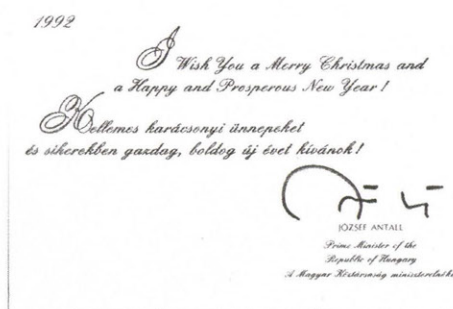 1992
I Wish You a Merry Christmas and
a Happy and Prosperous New Year!
Kellemes karácsonyi ünnepeket
és sikerekben gazdag, boldog új évet kívánok!
JÓZSEF ANTALL
Prime Minister of the
Republic of Hungary
A Magyar Köztársaság